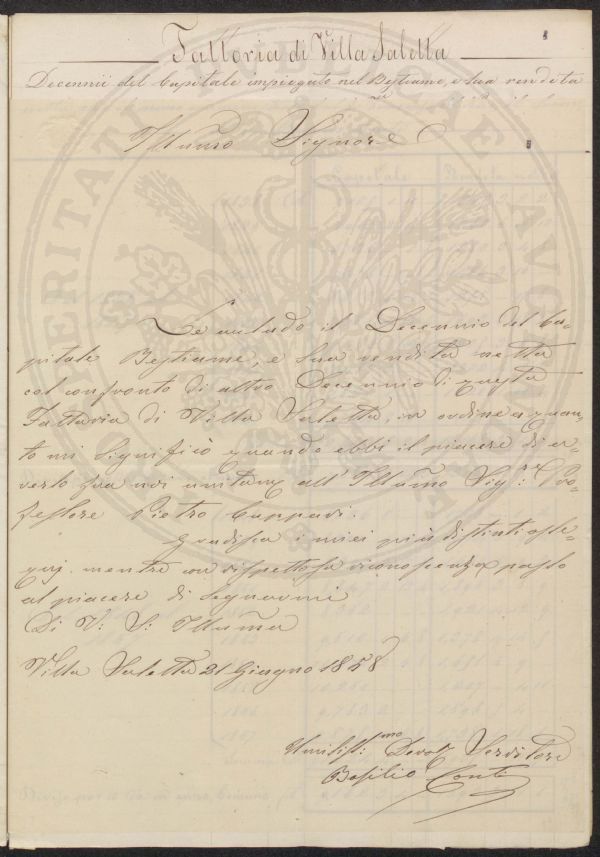 Fattoria di Villa Saletta
Decennii del Capitale impiegato nel Bestiame, e sua rendita
Illumo Signore
Le accludo il Decennio del Ca-
pitale Bestiame, e sua rendita netta
col confronto di altro Decennio di questa
Fattoria di Villa Saletta, in ordine a quan-
to mi significò quando ebbi il piacere di a-
verlo fra noi unitam all' Illumo Sigr. Pro-
fessore Pietro Cuppari.
Gradisca i miei più distinti osse-
quj mentre con rispettosa riconoscenza passo
al piacere di segnarmi
Di V: S: Illuma
Villa Saletta 21 Giugno 1858
Umiliss:mo Devot Servitore
Basilio Conti